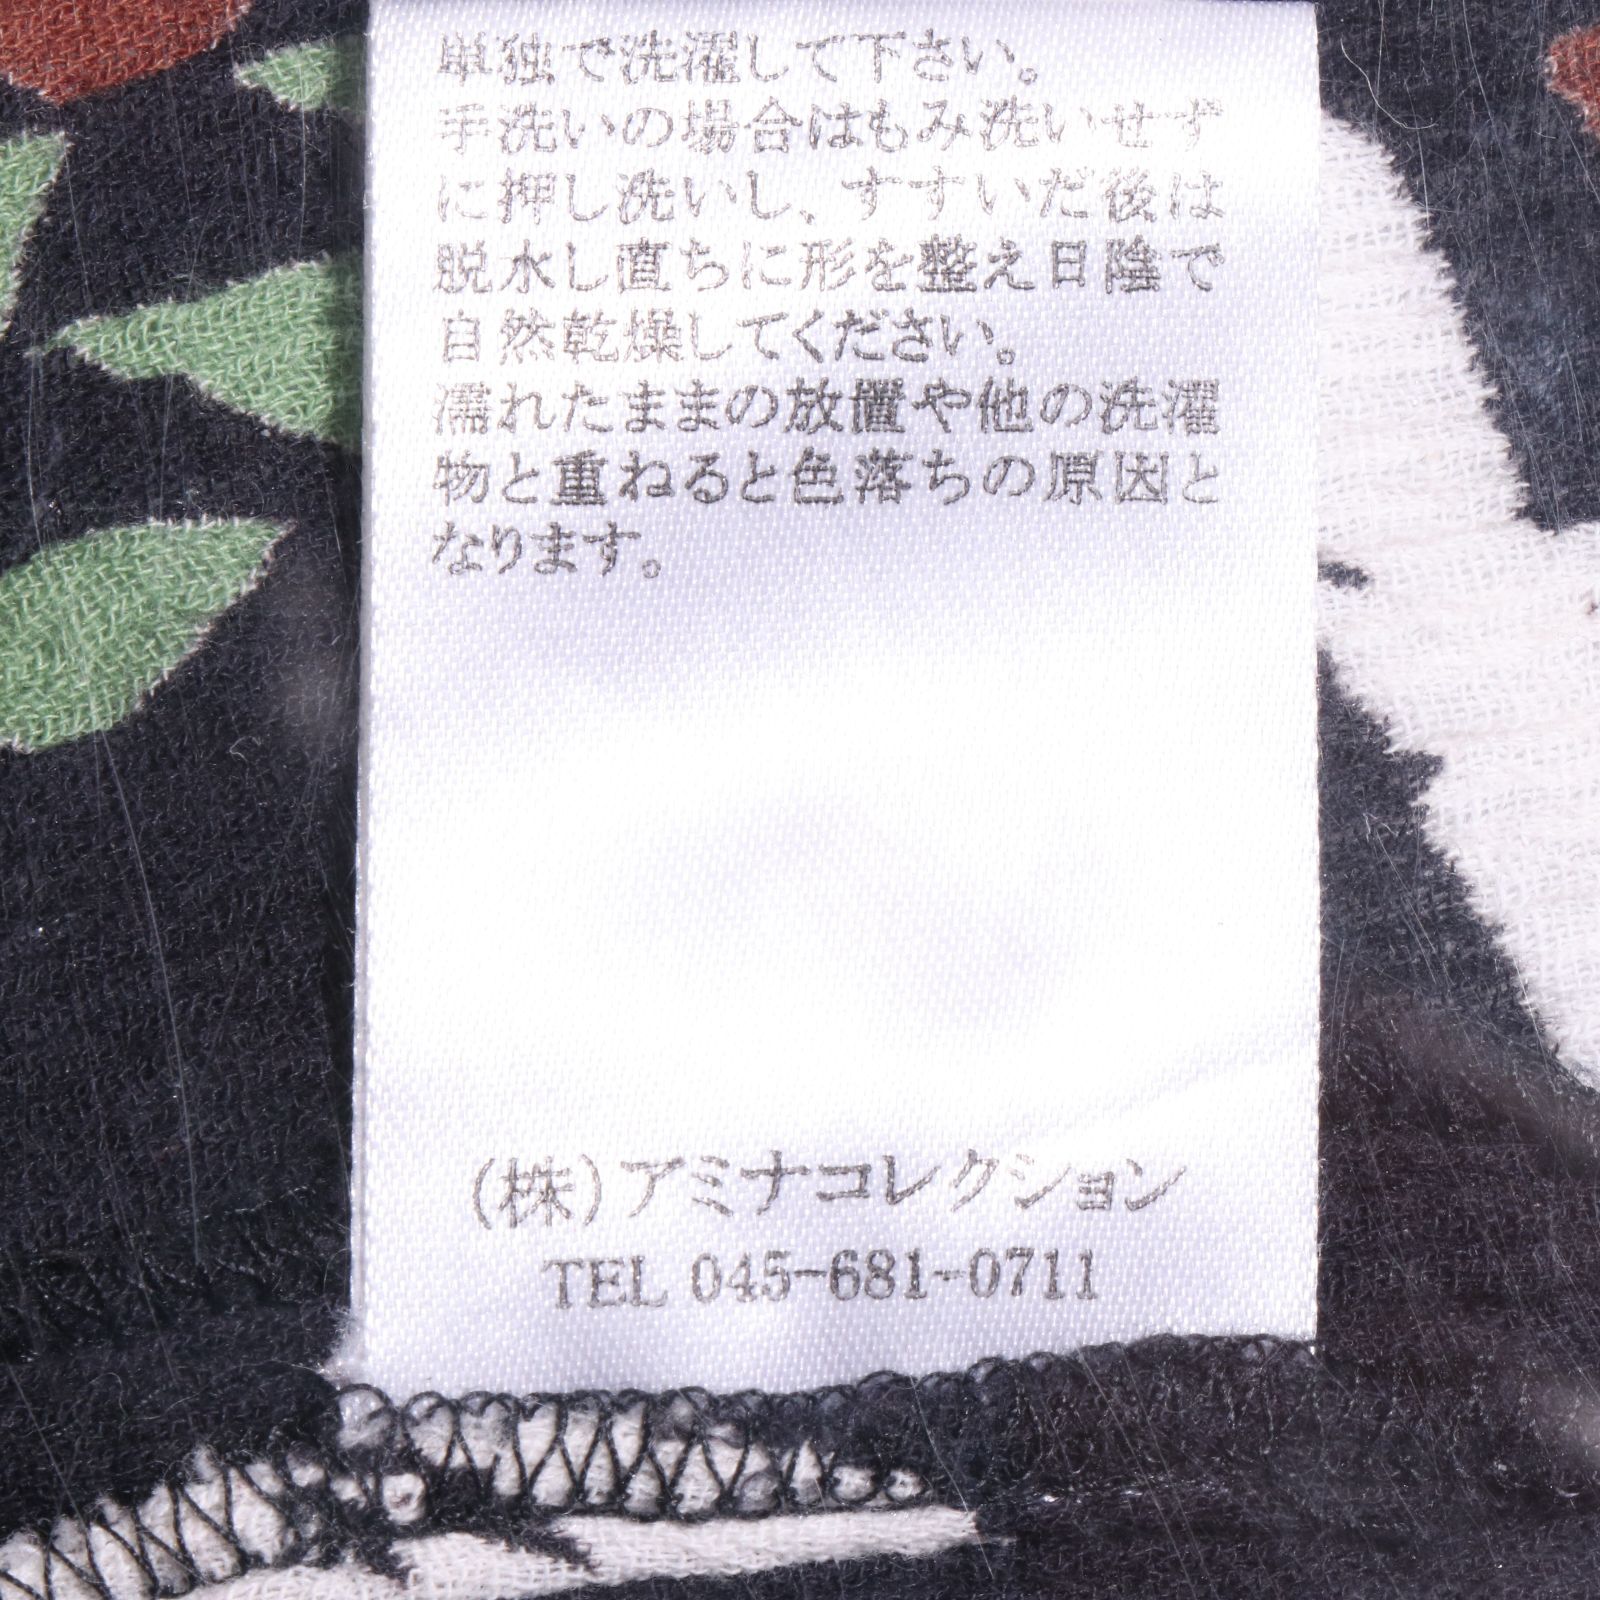 単独で洗濯して下さい。
手洗いの場合はもみ洗いせず
に押し洗いし、すすいだ後は
脱水し直ちに形を整え日陰で
自然乾燥してください。
濡れたままの放置や他の洗濯
物と重ねると色落ちの原因と
なります。
(株)アミナコレクション
TEL 045-681-0711